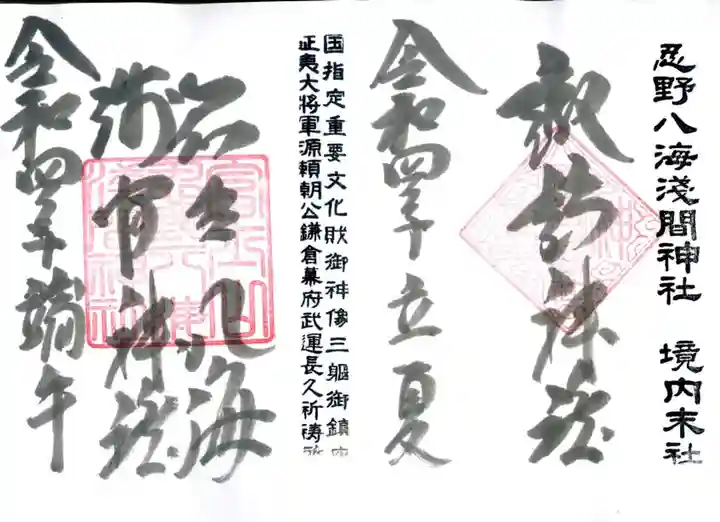 忍野八海淺間神社 境内末社
諏訪神社
令和四年立夏
国指定重要文化財御神像三軀御鎮座
征夷大将軍源頼朝公鎌倉幕府武運長久祈祷所
忍野八海
浅間神社
令和四年端午